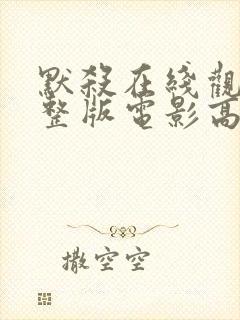 默殺在綫觀
整版電影高
撒空空